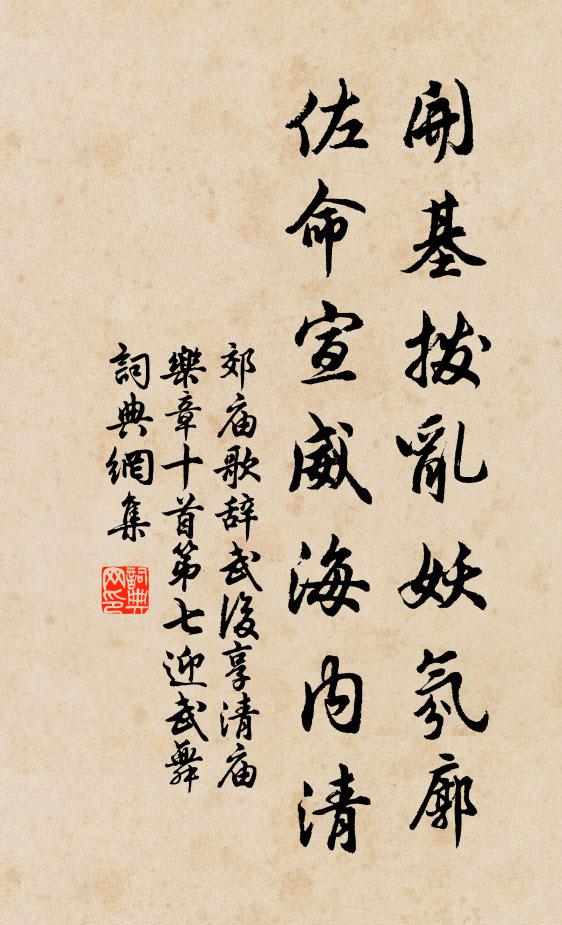 開基撥亂妖氛廓
佐命宣威海內清
郊庙歌辞武後享清庙
樂章十首第七迎武舞
詞典網集
詞典网印